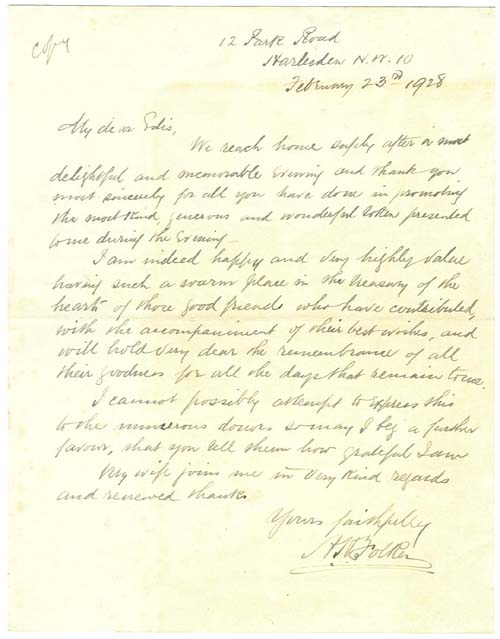 copy
12 Park Road
Harlesden N.W. 10
February 23rd 1928
My dear Edis,
We reach home safely after a most
delightful and memorable Evening and thank you
most sincerely for all you have done in promoting
the most kind, generous and wonderful token presented
to me during the Evening —
I am indeed happy and very highly value
having such a warm place in the treasury of the
heart of those good friends who have contributed,
with the accompaniment of their best wishes, and
will hold very dear the remembrance of all
their goodness for all the days that remain to me.
I cannot possibly attempt to express this
to the numerous donors so may I beg a further
favour, that you tell them how grateful I am
My wife joins me in very kind regards
and renewed thanks
Yours faithfully
Folker